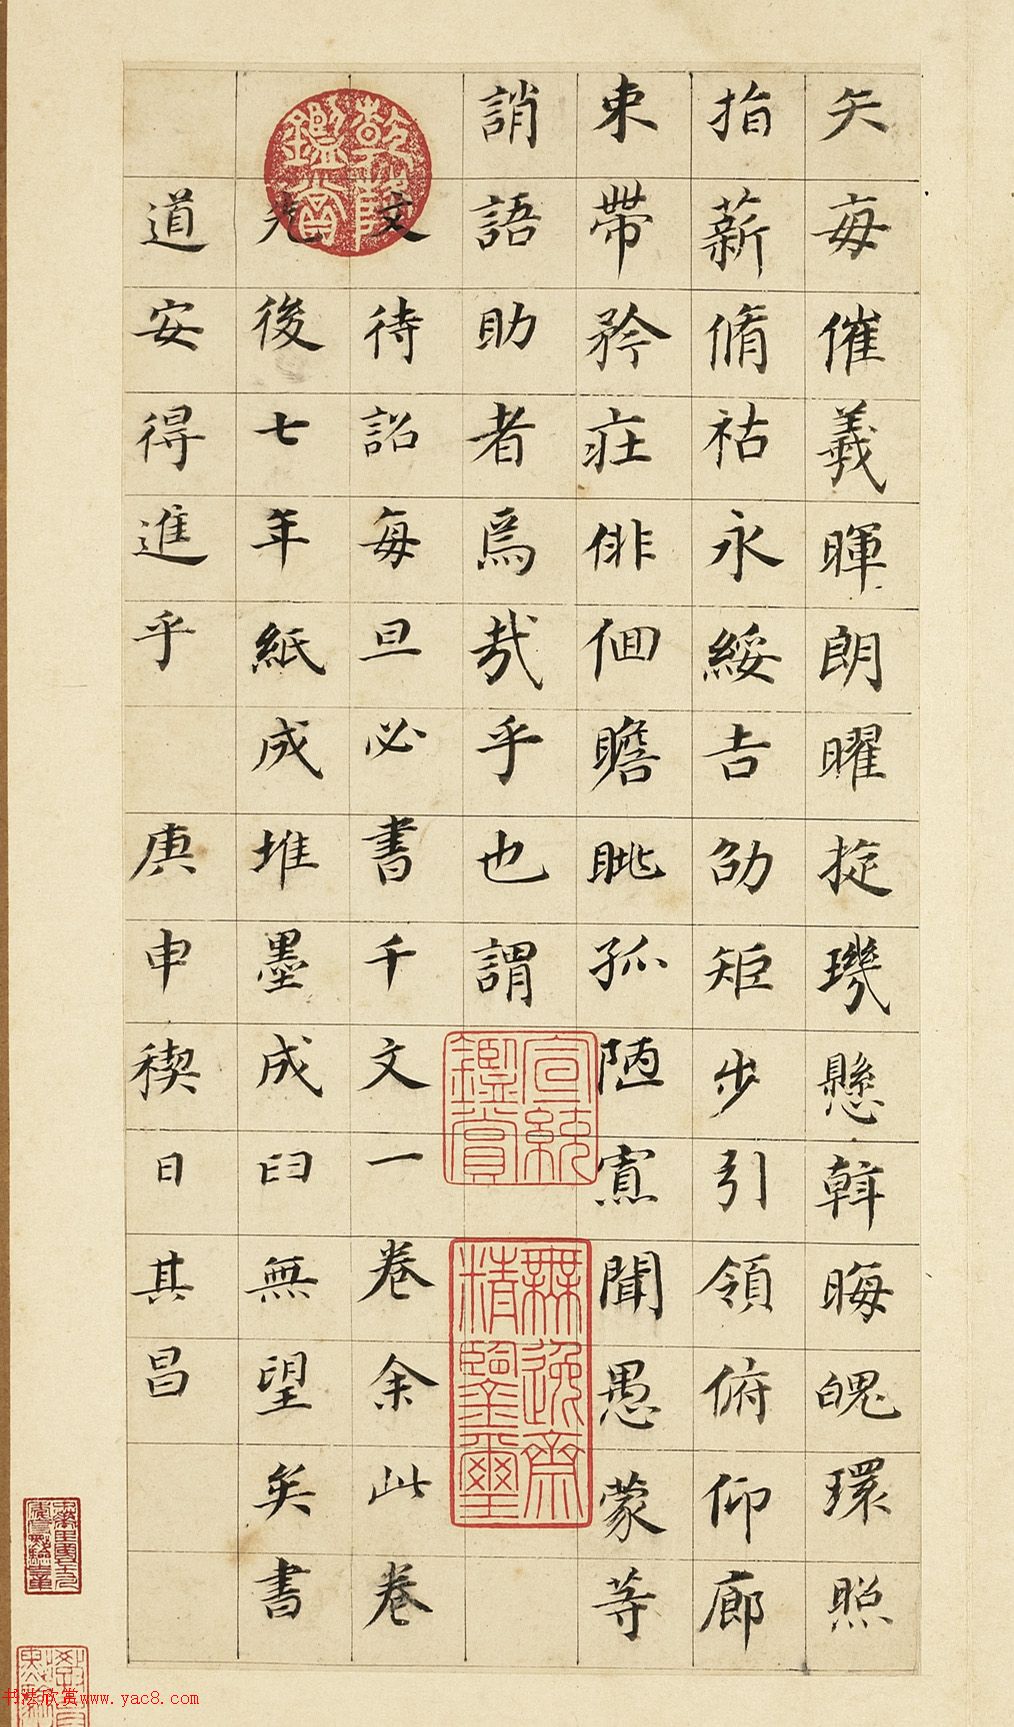 矢每催羲暉朗曜挻璣懸斡晦魄環照
指薪脩祜永綏吉劭矩步引領俯仰廊
束帶矜莊俳佪瞻眺孤陋寡聞愚蒙等
誚語助者焉哉乎也謂
文待詔每旦必書千文一卷余此卷
先後七年紙成堆墨成臼無望矣書
道安得進乎 庚申稧日其昌
乾隆鑑賞
宣統鑑賞
無逸齋精鑒璽
书法欣赏www.yac8.com